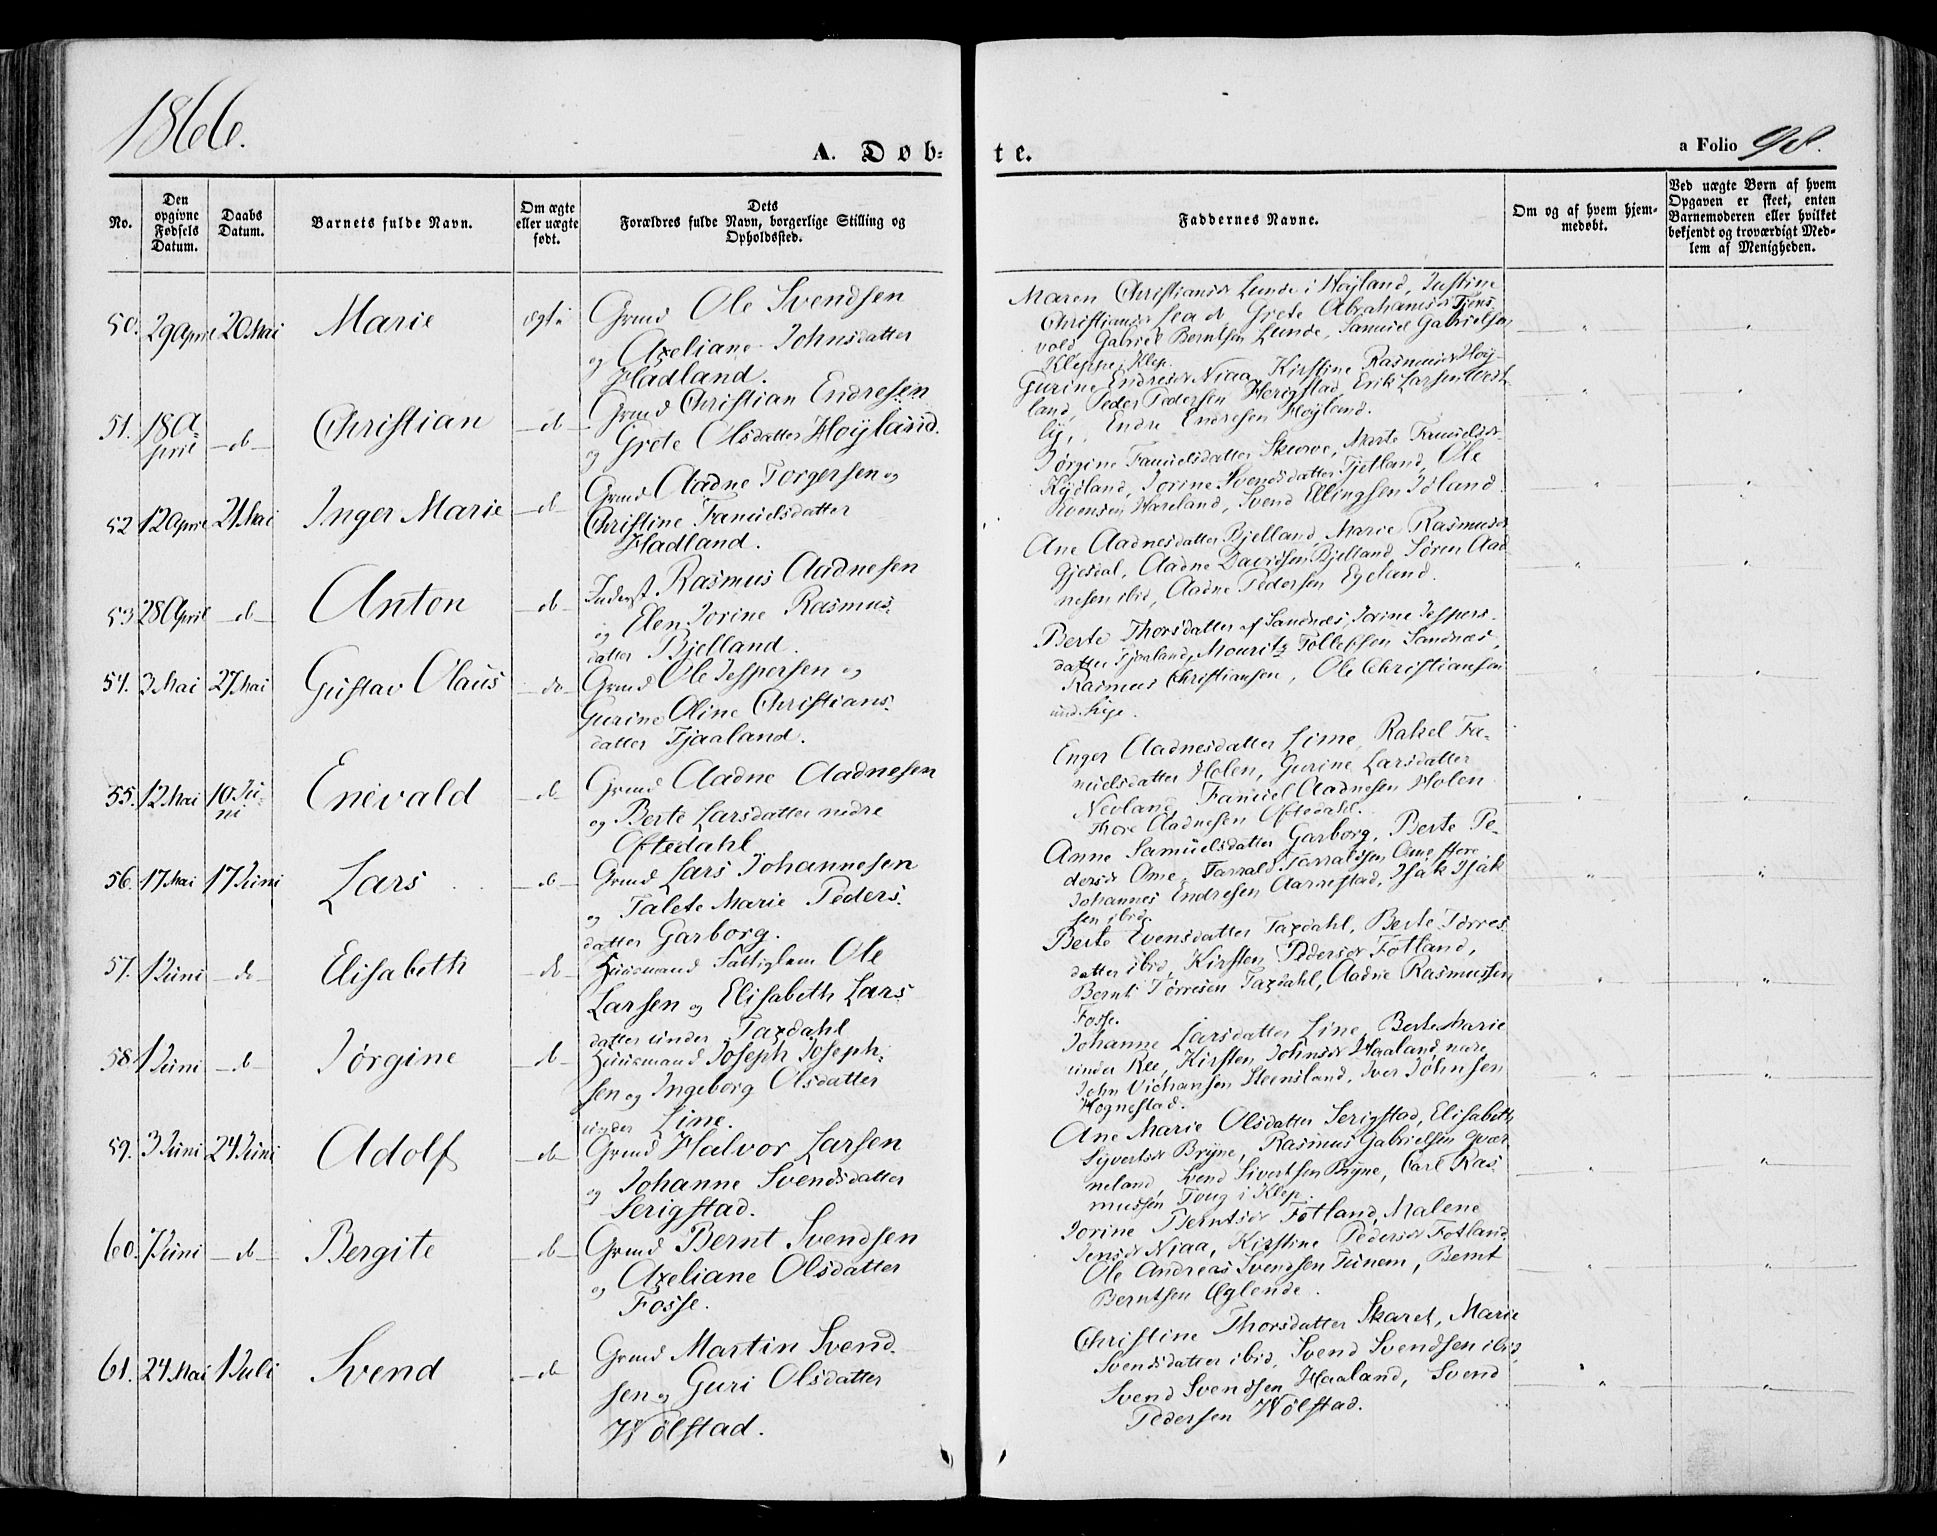 1866.
A. Døb-
te.
a Folio 98.
No.
Den opgivne Fødsels Datum.
Daabs Datum.
Barnets fulde Navn.
Om ægte eller uægte født.
Dets Forældres fulde Navn, borgerlige Stilling og Opholdssted.
Faddernes Navne.
Om og af hvem hjemmedøbt.
Ved uægte Børn af hvem Opgaven er skeet, enten Barnemoderen eller hvilket bekjendt og troværdigt Medlem af Menigheden.
50. 29 April 20 Mai Marie ægte
Grmd Ole Svendsen
og Axeliane Johnsdatter
Hadland.
Maren Christiansdr Lunde i Højland, Justine
Christiansdr Grete Abrahamsdr
vold Gabriel Berntsen Lunde, Samuel Gabrielsen
Kleppe i Klep.
51. 18 April do Christian do
Grmd Christian Endresen
og Grete Olsdatter Højland.
Gurine Endresdr Niaa, Kirstine Rasmusdr Høj-
land, Peder Pedersen Herigstad, Erik Larsen Vest-
ly, Endre Endresen Højland.
52. 12 April 21 Mai Inger Marie do
Grmd Aadne Torgersen og
Christine Fanuelsdatter
Hadland.
Jørgine Fanuelsdatter Skurve, Marte Fanuelsdr
Svendsdatter Tjetland, Ole
Svensen Haveland, Svend Ellingsen Joland.
53. 28 April do Anton do
Inderst Rasmus Aadnesen
og Elen Jorine Rasmus-
datter Bjelland.
Ane Aadnesdatter Bjelland, Marie Rasmusdr
Gjesdal, Aadne Davidsen Bjelland, Søren Aad-
nesen ibid, Aadne Pedersen Egeland.
54. 3 Mai 27 Mai Gustav Olaus do
Grmd Ole Jespersen og
Gurine Oline Christians-
datter Tjaaland.
Berte Thorsdatter af Sandnæs, Jorine Jespers-
datter Tjaaland, Mouritz Tollefsen Sandnæs,
Rasmus Christiansen, Ole Christiansen
55. 12 Mai 10 Juni Enevald do
Grmd Aadne Aadnesen
og Berte Larsdatter nedre
Oftedahl
Enger Aadnesdatter Lime, Rakel Fa-
nuelsdatter Holen, Gurine Larsdatter
Nevland, Fanuel Aadnesen Holen
Thore Aadnesen Oftedahl.
56. 17 Mai 17 Juni Lars do
Grmd Lars Johannesen
og Talete Marie Peders-
datter Garborg.
Anne Samuelsdatter Garborg, Berte Pe-
dersdr Ome, Tarrald Tarraldsen Ome store
Johannes Endresen Aarrestad, Isak Isak-
sen ibid.
57. 1 Juni do Elisabeth do
Huusmand Fattiglem Ole
Larsen og Elisabeth Lars
datter under Taxdahl
Berte Evensdatter Taxdahl, Berte Torres
datter ibid, Kirsten Pedersdr Fotland,
Bernt Torresen Taxdahl, Aadne Rasmussen
Fosse.
58. 1 Juni do Jørgine do
Huusmand Joseph Joseph-
sen og Ingeborg Olsdatter
under Line.
Johanne Larsdatter Line, Berte Marie
under Ree, Kirsten Johnsdr Haaland nære
John Steensland, Iver Johnsen
Hognestad.
59. 3 Juni 24 Juni Adolf do
Grmd Halvor Larsen
og Johanne Svendsdatter
Serigstad.
Ane Marie Olsdatter Serigstad, Elisabeth
Syvertsdr Bryne, Rasmus Gabrielsen Qvær
neland, Svend Sivertsen Bryne, Carl Ras
mussen Toug i Klep.
60. 7 Juni do Bergite do
Grmd Bernt Svendsen
og Axeliane Olsdatter
Fosse.
Jorine Berntsdr Fotland, Malene
Jensdr Niaa, Kirstine Pedersdr Fotland
Ole Andreas Svendsen Tunem, Bernt
Berntsen Øglende.
61. 24 Mai 1 Juli Svend do
Grmd Martin Svend-
sen og Guri Olsdatter
Wølstad.
Christine Thorsdatter Skaret, Marie
Svendsdatter ibid, Svend Svendsen ibid,
Svend Svendsen Haaland, Svend
Pedersen Wølstad.